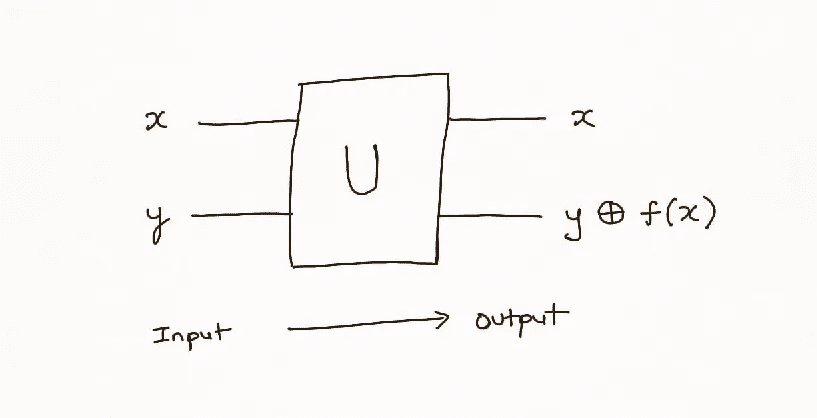 x x
U
y y ⊕ f(x)
Input output